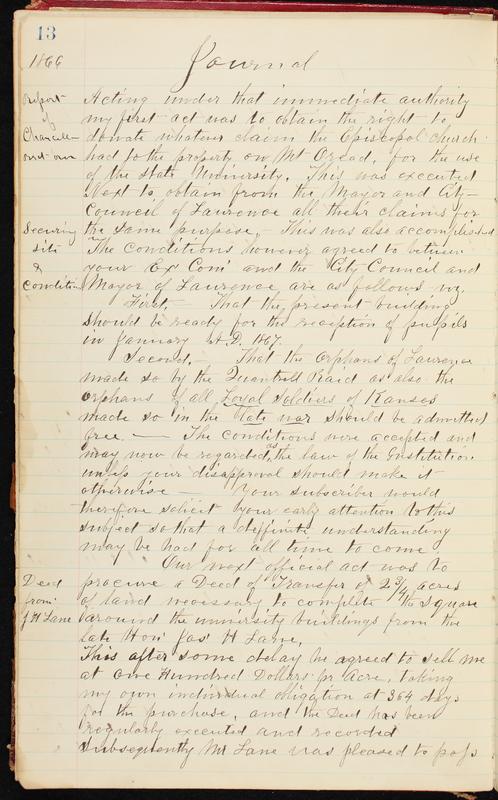 13
1866
Journal
Report
of
Chancellor
Acting under that immediate authority
my first act was to obtain the right to
donate whatever claim the Episcopal church
had to the property on Mt Oread, for the use
of the State University. This was executed
Next to obtain from the Mayor and City-
Council of Laurence all their claims for
Securing
site
&
conditions
the same purpose,- This was also accomplished
The conditions however agreed to between
your Ex Com' and the City Council and
Mayor of Laurence are as follows viz,
First.- That the present building
should be ready for the reception of pupils
in January A.D. 1867.
Second.- That the orphans of Laurence
made so by the Quantrell Raid as also the
orphans of all Loyal Soldiers of Kansas
made so in the late war should be admitted
free.- The conditions were accepted and
may now be regarded as the law of the Institution
unless your disapproval should make it
otherwise - Your subscriber would
therefore solicit your early attention to this
subject so that a deffinite understanding
may be had for all time to come
Our next official act was to
Deed
from
J H Lane
procure a Deed of Transfer of 2 3/4 acres
of land necessary to complete the square
around the university buildings from the
late Hon' Jas' H Lane,
This after some delay he agreed to sell me
at One Hundred Dollars pr acre, taking
my own individual obligation at 364 days
for the purchase, and the Deed has been
regularly executed and recorded
Subsequently Mr Lane was pleased to pass